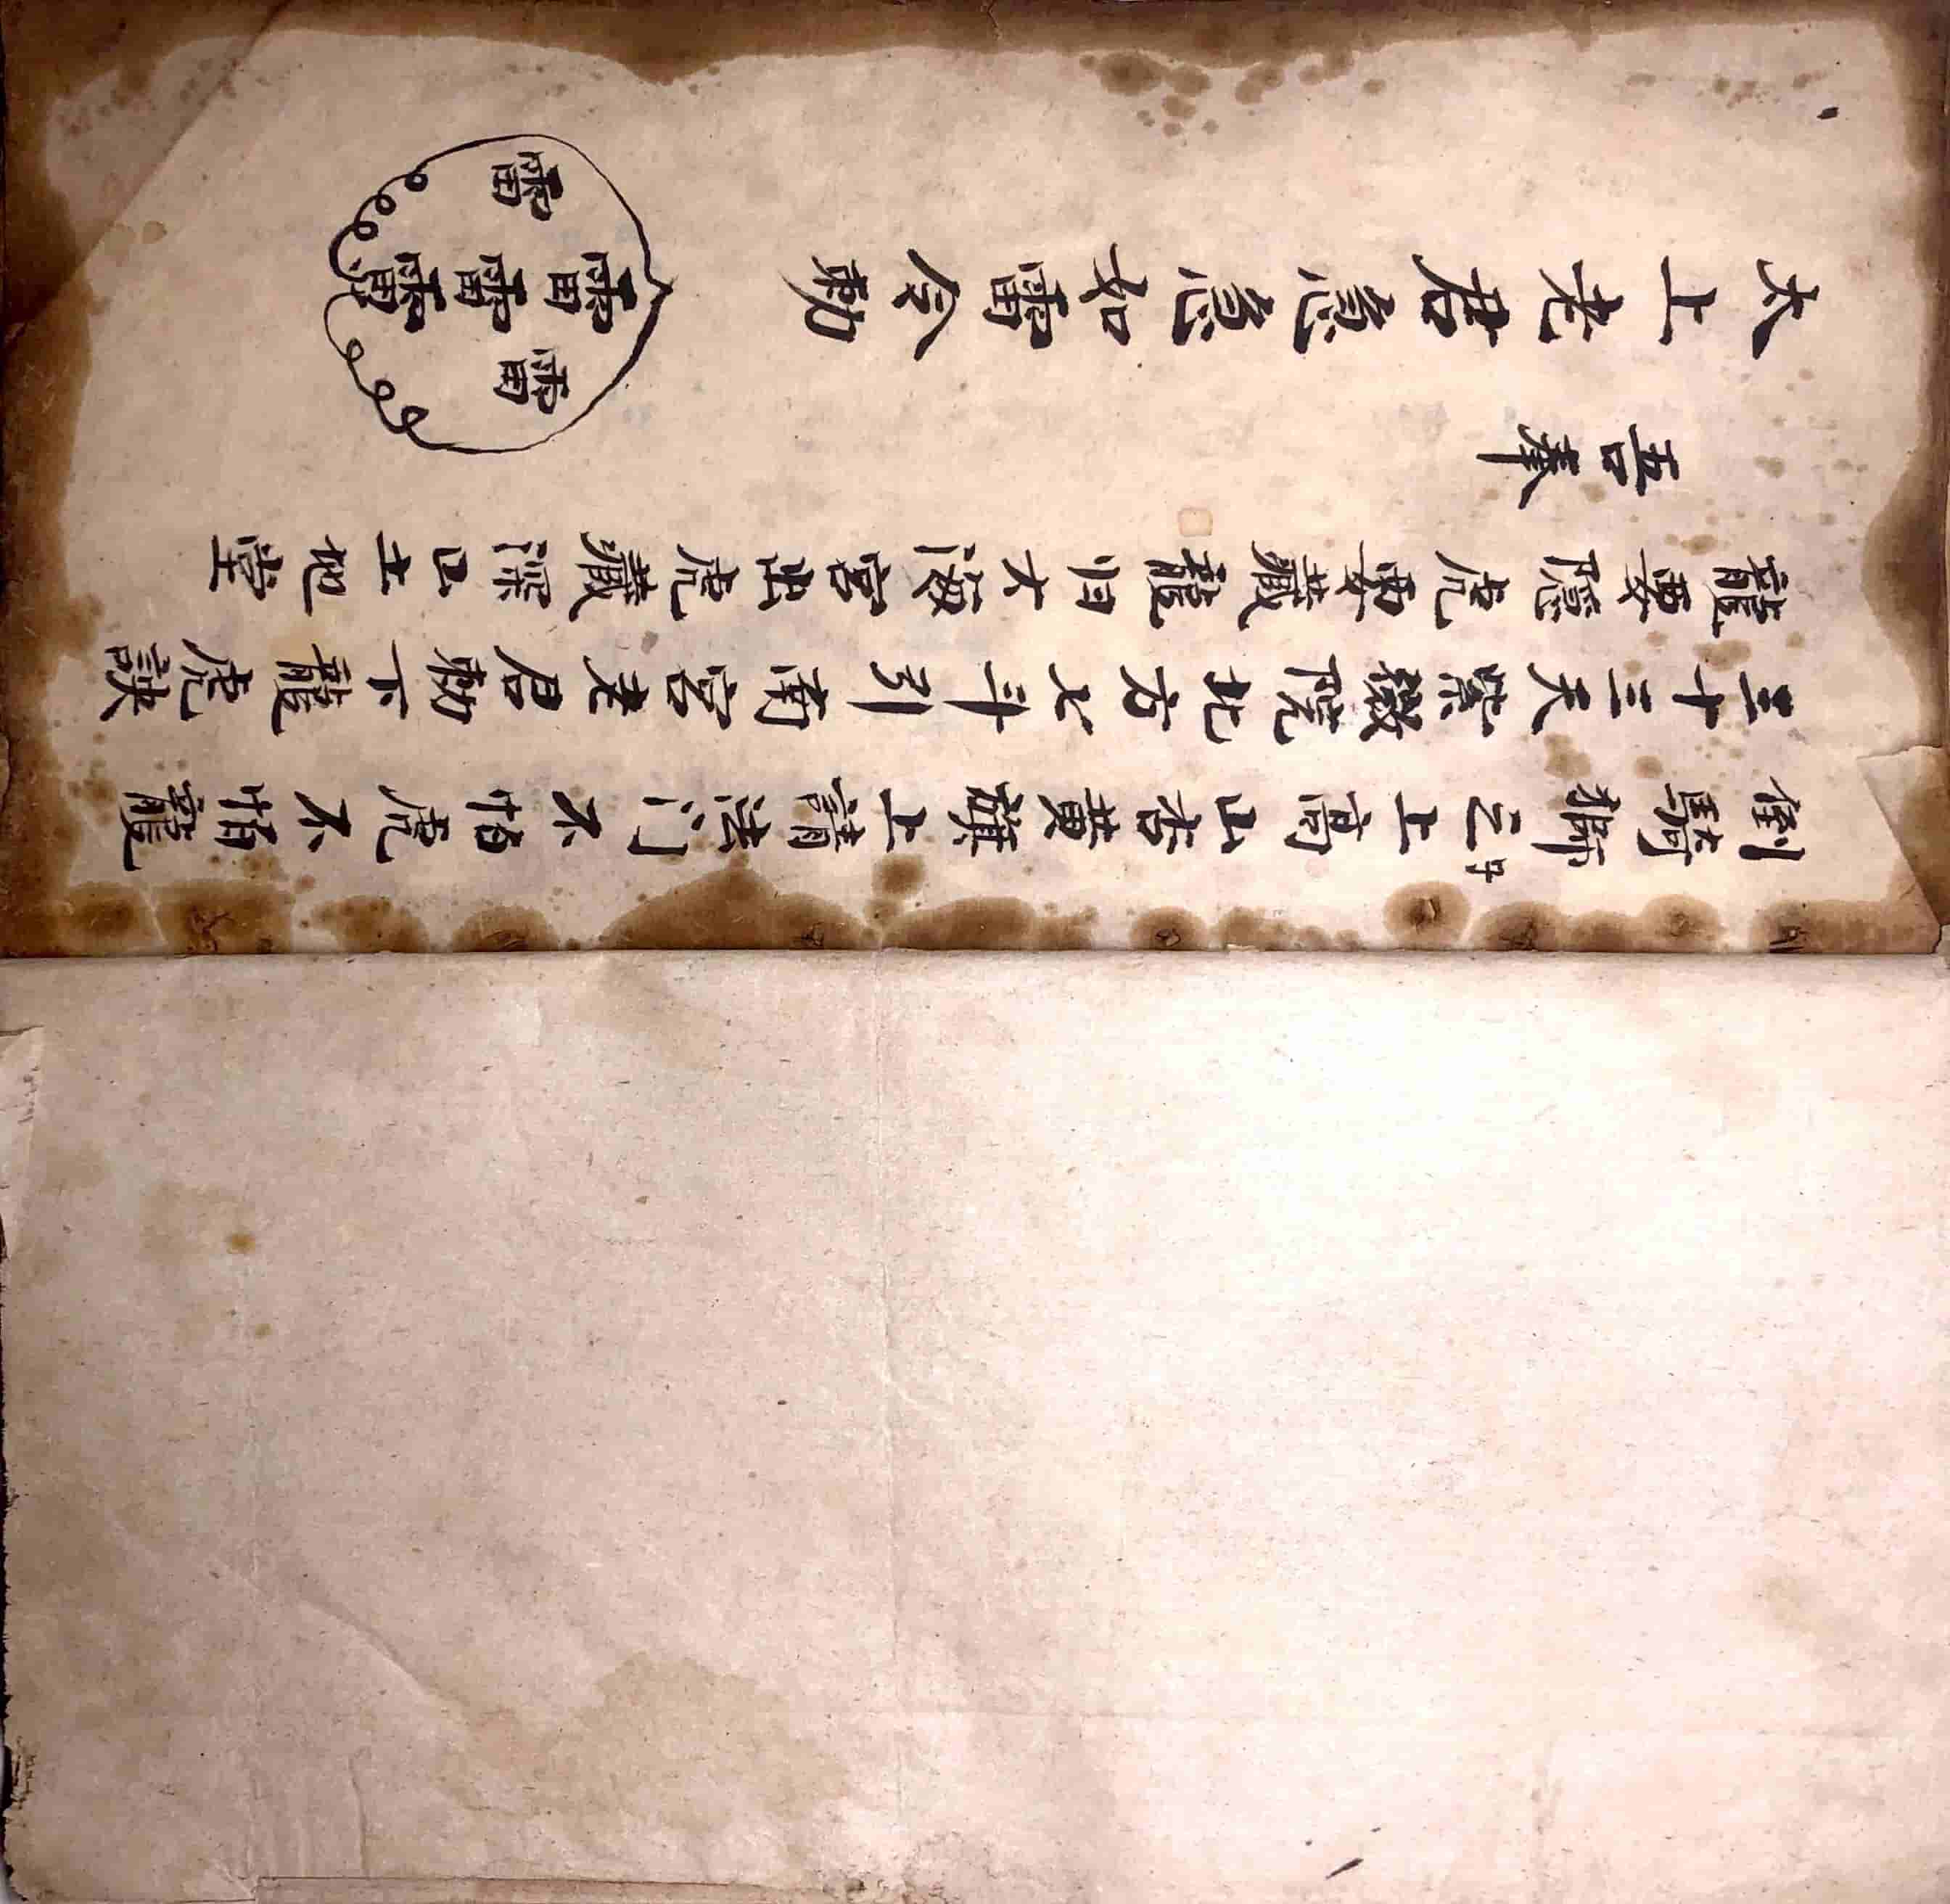 倒騎獅之中上高山杏黄旗上請法门不怕虎不怕龍
三十三天紫微院北方七斗引南宮老君勅下龍虎訣
龍要隱虎要藏龍归大海宮出虎藏深山土地堂
吾奉
太上老君急急如雷令勅
雷
雷雷
雷